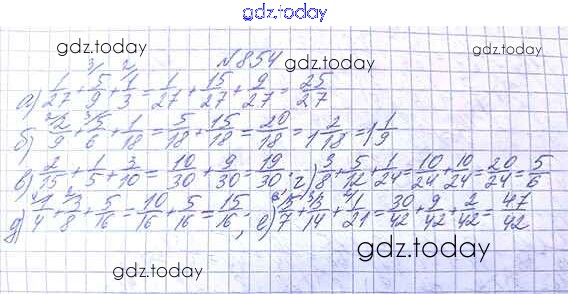 gdz.today
gdz.today №854 gdz.today
а) 1/27 + 5/9 + 1/3 = 1/27 + 15/27 + 9/27 = 25/27
б) 2/9 + 5/6 + 1/18 = 5/18 + 15/18 = 20/18 = 1 2/18 = 1 1/9
в) 2/15 + 1/5 + 3/10 = 10/30 + 9/30 = 19/30; г) 3/8 + 5/12 + 1/24 = 10/24 + 10/24 = 20/24 = 5/6
д) 1/4 + 3/8 + 5/16 = 10/16 + 5/16 = 15/16; е) 5/7 + 3/14 + 1/21 = 30/42 + 9/42 + 2/42 = 47/42
gdz.today
gdz.today